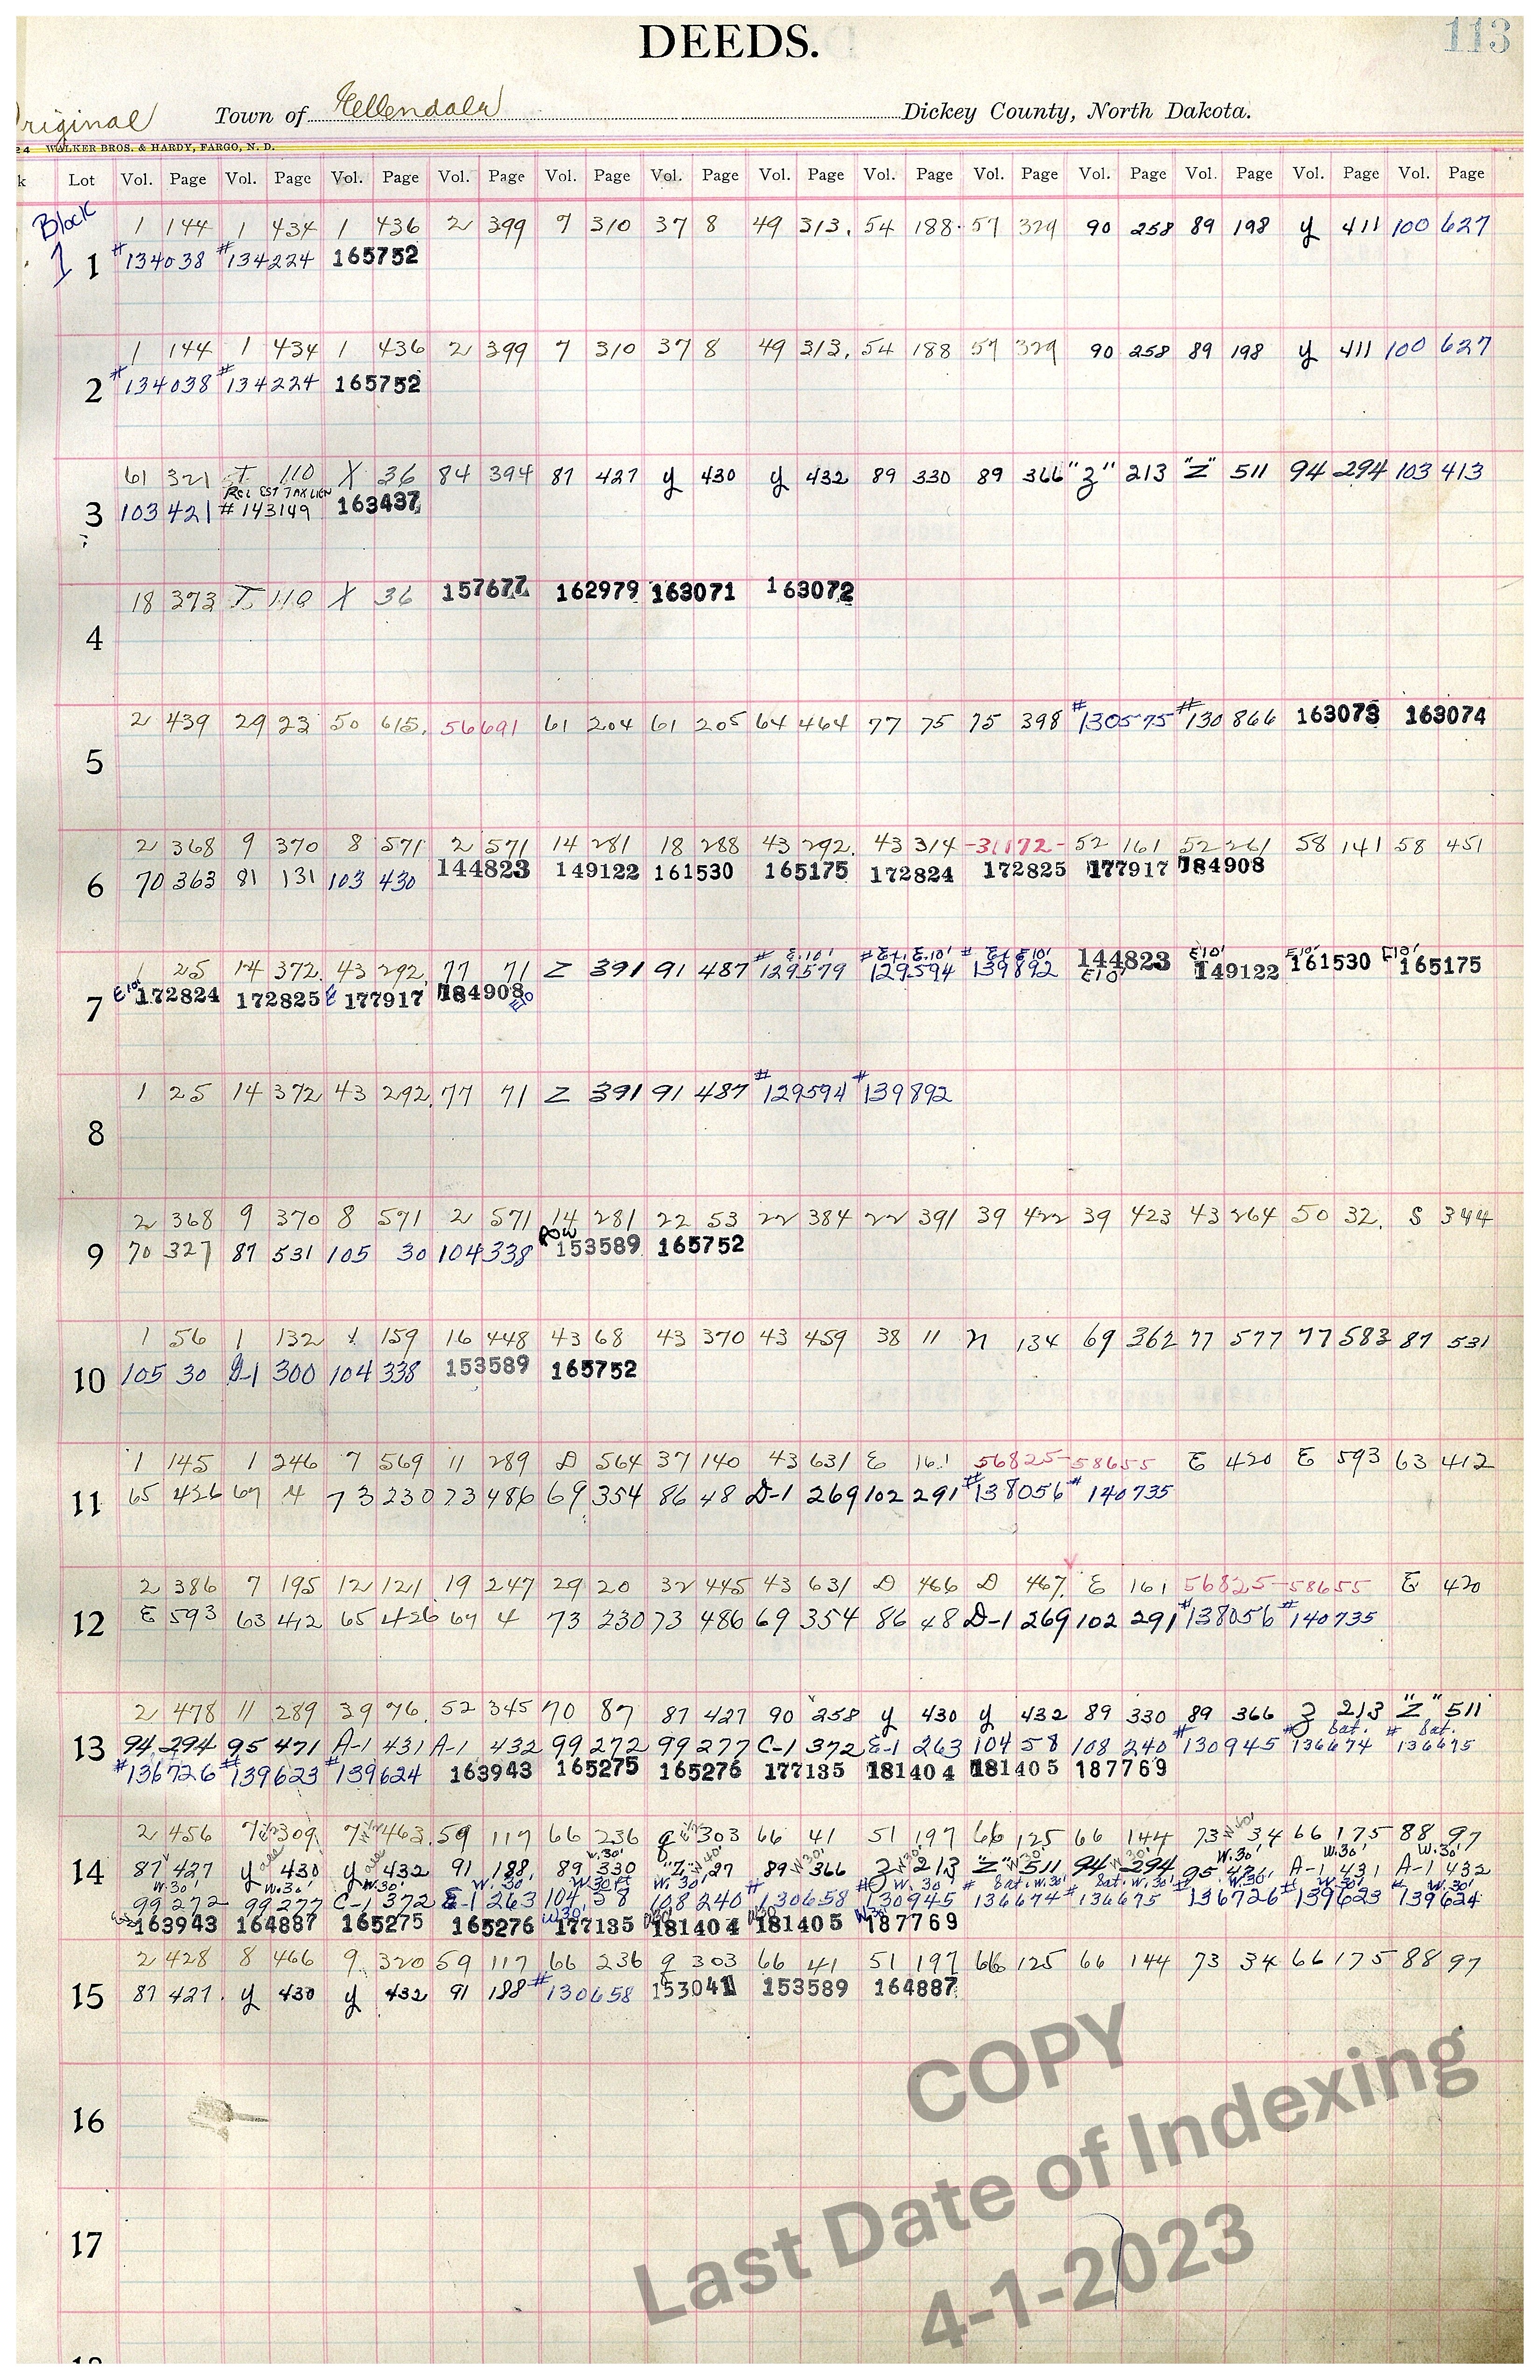 DEEDS.
113
Original Town of Ellendale Dickey County, North Dakota.
24 WALKER BROS. & HARDY, FARGO, N. D.
k Lot Vol. Page Vol. Page Vol. Page Vol. Page Vol. Page Vol. Page Vol. Page Vol. Page Vol. Page Vol. Page Vol. Page Vol. Page Vol. Page
Block 1 144 1 434 1 436 2 399 7 310 37 8 49 313. 54 188. 57 329 90 258 89 198 y 411 100 627
1 1 #134038 #134224 165752
1 144 1 434 1 436 2 399 7 310 37 8 49 313. 54 188 57 329 90 258 89 198 y 411 100 627
2 #134038 #134224 165752
61 321 T 110 X 36 84 394 87 427 y 430 y 432 89 330 89 366 "Z" 213 "Z" 511 94 294 103 413
REL EST TAX LIEN
3 103 421 #143149 163437
18 373 T 110 X 36 157677 162979 163071 163072
4
2 439 29 23 50 615. 56691 61 204 61 205 64 464 77 75 75 398 #130575 #130866 163073 163074
5
2 368 9 370 8 571 2 571 14 281 18 288 43 292. 43 314 -31172- 52 161 52 261 58 141 58 451
6 70 363 81 131 103 430 144823 149122 161530 165175 172824 172825 177917 184908
# E.10' # E.10' # E10' E10' E10' E10'
1 25 14 372. 43 292. 77 71 Z 391 91 487 129579 129594 139892 144823 149122 161530 165175
E10'
7 E10' 172824 172825 E 177917 184908 E10
1 25 14 372 43 292. 77 71 Z 391 91 487 #129594 #139892
8
2 368 9 370 8 571 2 571 14 281 22 53 22 384 22 391 39 422 39 423 43 264 50 32. S 344
ROW
9 70 327 87 531 105 30 104 338 153589 165752
1 56 1 132 1 159 16 448 43 68 43 370 43 459 38 11 n 134 69 362 77 577 77 583 87 531
10 105 30 D-1 300 104 338 153589 165752
1 145 1 246 7 569 11 289 D 564 37 140 43 631 E 161 56825-58655 E 420 E 593 63 412
11 65 426 67 4 73 230 73 486 69 354 86 48 D-1 269 102 291 #138056 #140735
2 386 7 195 12 121 19 247 29 20 32 445 43 631 D 466 D 467. E 161 56825-58655 E 420
12 E 593 63 412 65 426 67 4 73 230 73 486 69 354 86 48 D-1 269 102 291 #138056 #140735
2 478 11 289 39 76. 52 345 70 87 87 427 90 258 y 430 y 432 89 330 89 366 Z 213 "Z" 511
# # Sat. # Sat.
13 94 294 95 471 A-1 431 A-1 432 99 272 99 277 C-1 372 E-1 263 104 58 108 240 130945 136674 136675
#136726 #139623 #139624 163943 165275 165276 177135 181404 181405 187769
2 456 7 309 7 463. 59 117 66 236 g 303 66 41 51 197 66 125 66 144 73 34 66 175 88 97
14 87 427 y 430 y 432 91 188. 89 330 "Z" 27 89 366 Z 213 "Z" 511 94 294 95 471 A-1 431 A-1 432
W.30' W.30' W.30' W.30' W.30' W.30' # # W.30' # Sat. W.30' # Sat. W.30' # W.30' # W.30' # W.30'
99 272 99 277 C-1 372 E-1 263 104 58 108 240 130658 130945 136674 136675 136726 139623 139624
163943 164887 165275 165276 W30' 177135 W30' 181404 W30' 181405 W30' 187769
2 428 8 466 9 320 59 117 66 236 g 303 66 41 51 197 66 125 66 144 73 34 66 175 88 97
15 87 427. y 430 y 432 91 188 #130658 153041 153589 164887
16
17
COPY
Last Date of Indexing
4-1-2023